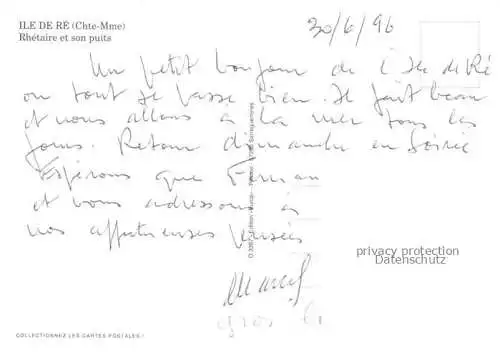 ILE DE RÉ (Chte-Mme)
Rhétaire et son puits
30/6/96
Un petit bonjour de l'Ile de Ré
ou tout se passe bien. Il fait beau
et nous allons a la mer tous les
jours. Retour dimanche en Soirée
Espérons que
et vous adressons
nos affectueuses pensées
privacy protection
Datenschutz
gros
COLLECTIONNEZ LES CARTES POSTALES !